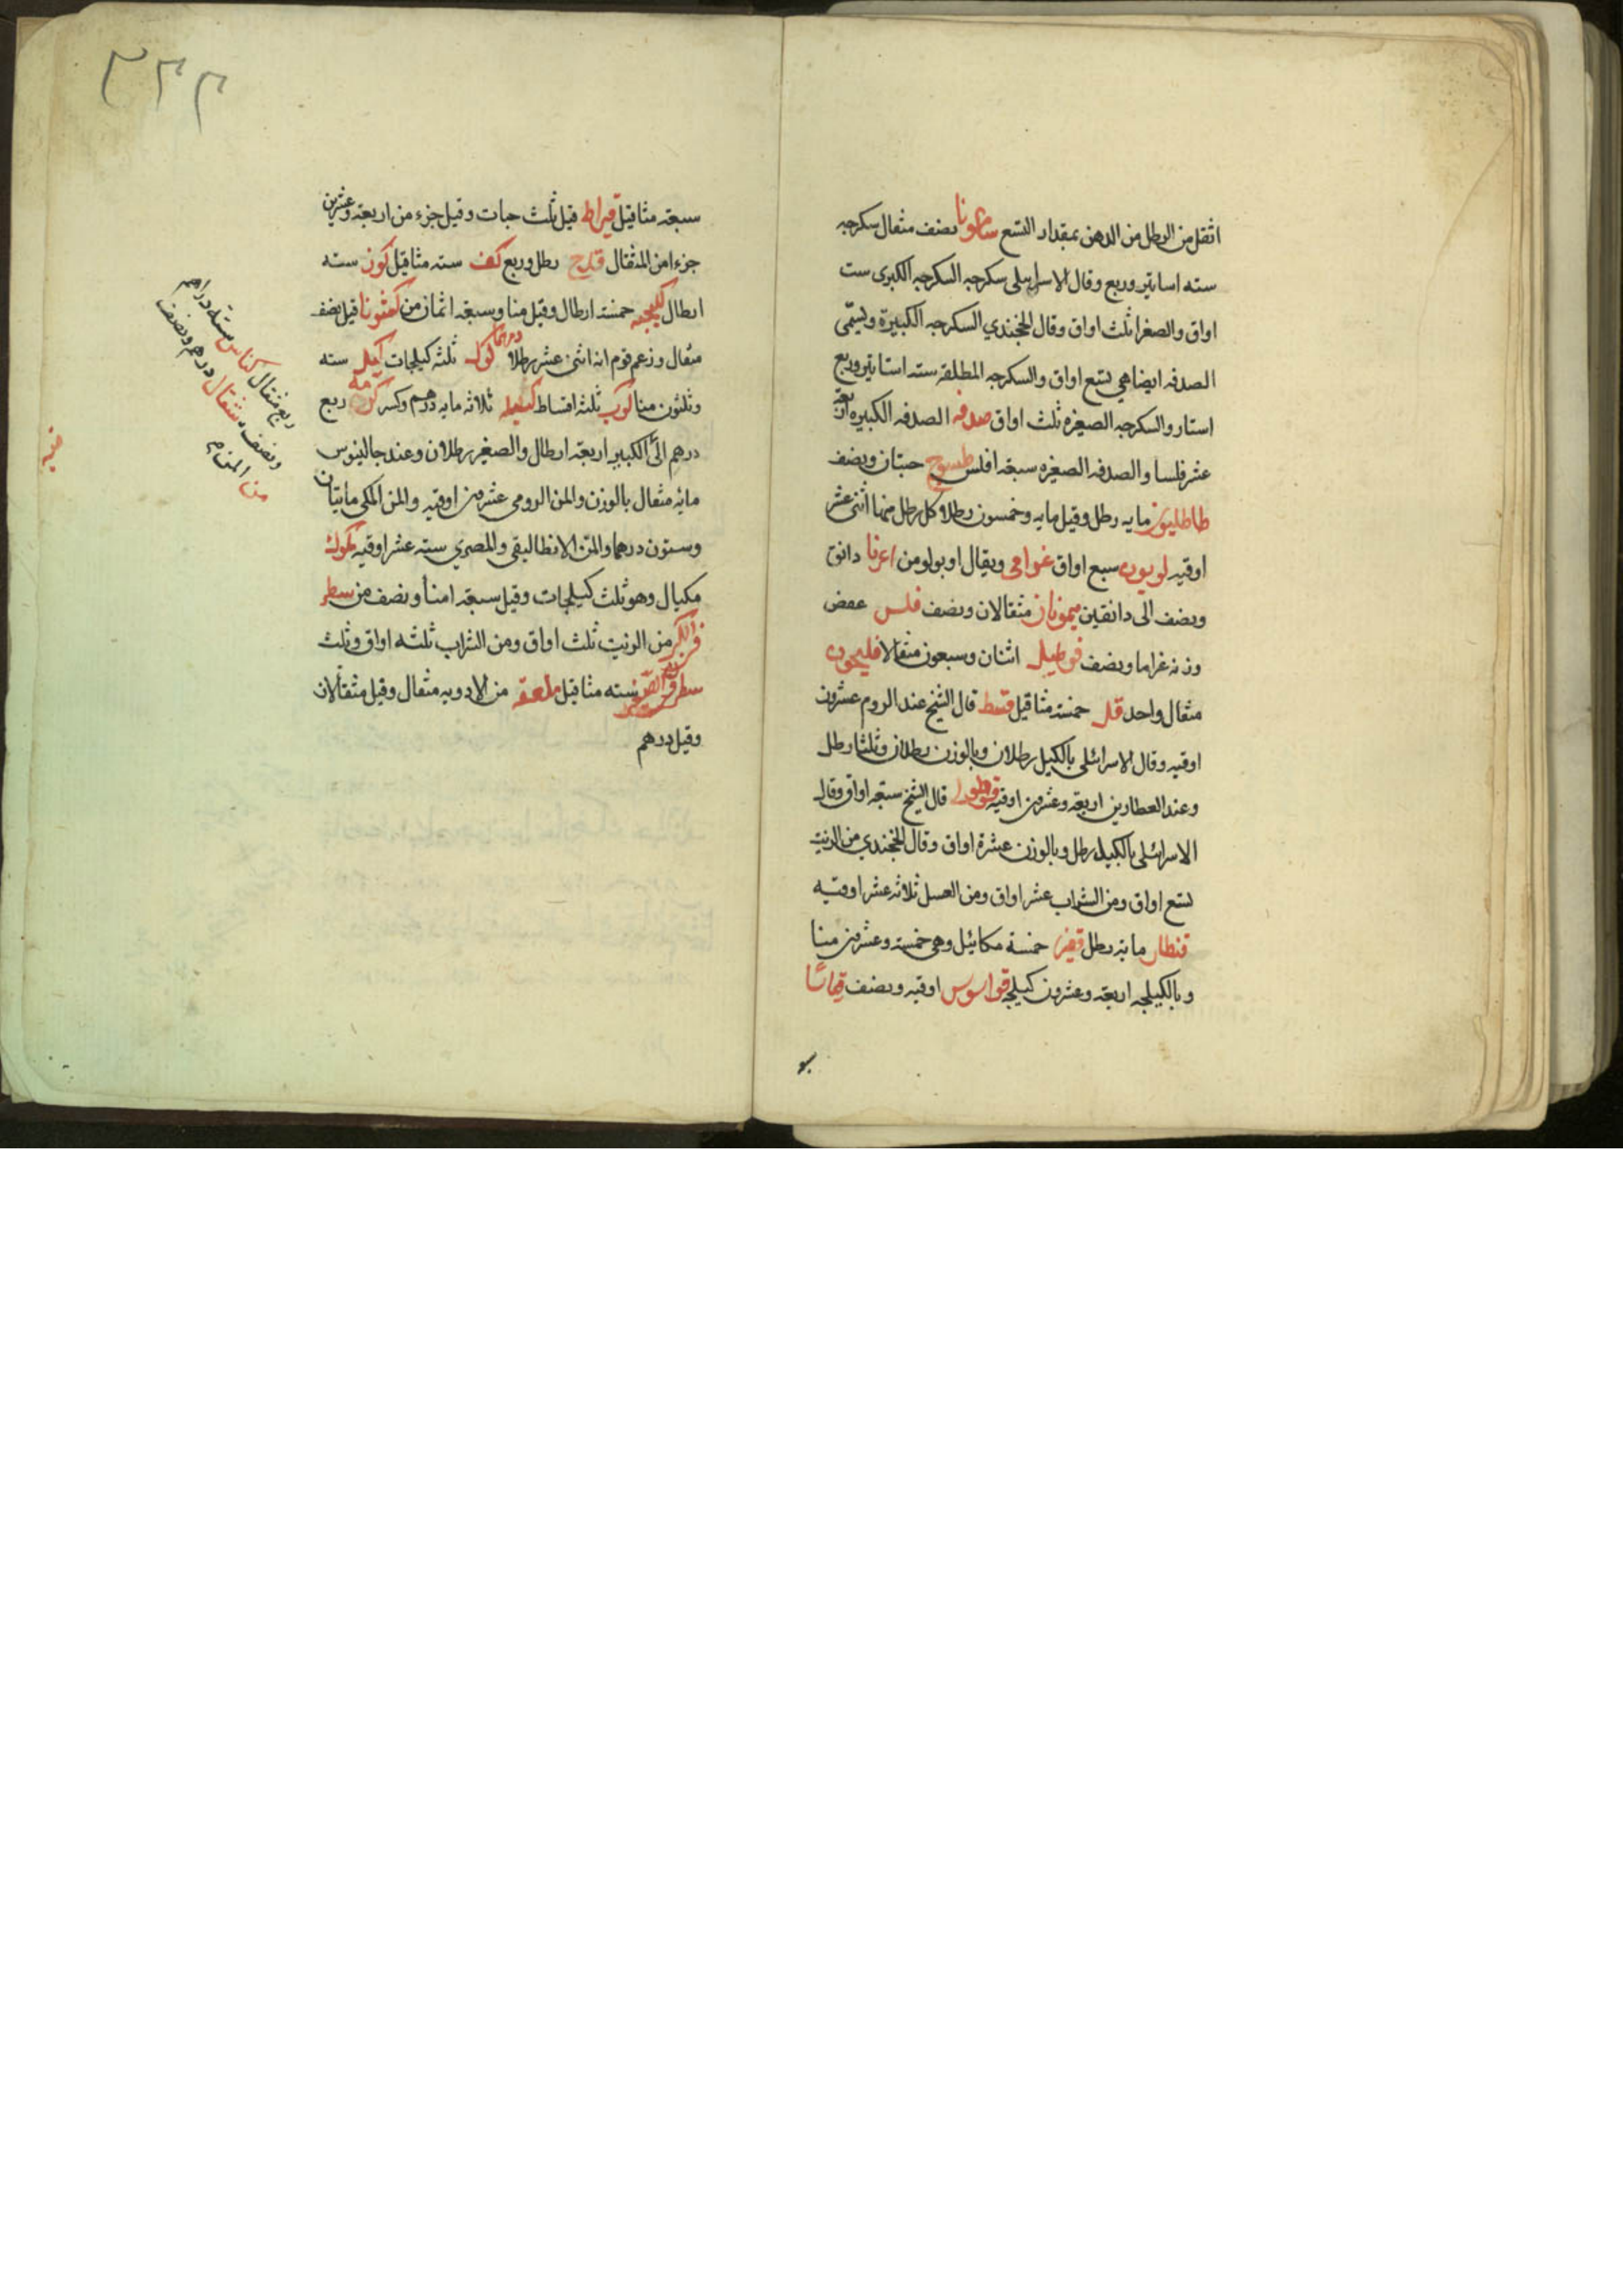 اثقل من الرطل من الدهن بمقدار التسع سامونا نصف مثقال سكرجه
سته اساتير وربع وقال الاسرايلى سكرجه السكرجه الكبرى ست
اواق والصغرا ثلث اواق وقال الخجندي السكرجه الكبيرة وليسمّى
الصدفه ايضا هي تسع اواق والسكرجه المطلقه سته استاتير وربع
استار والسكرجه الصغيره ثلث اواق صدفه الصدفه الكبيره اربعة
عشر فلسا والصدفه الصغيره سبعه افلس طسوج حبتان ونصف
طاطليون مايه رطل وقيل مايه وخمسون رطلا وكل رطل منها اثنى عشر
اوقيه لوبون سبع اواق غرامى ويقال اوبولو من اغرنا دانق
ونصف الى دانقين ميمونان مثقالان ونصف فلس
وزنه غراما ونصف قوطيل اثنان وسبعون مثقالا فليحون
مثقال واحد قل خمسة مثاقيل قسط قال الشيخ عند الروم عشرون
اوقيه وقال الاسرائلى بالكيل رطلان وبالوزن رطلان وثلثا رطل
وعند العطارين اربعة وعشرون اوقيه قوطولى قال الشيخ سبعة اواق وقال
الاسرائلى بالكيل رطل وبالوزن عشرة اواق وقال الخجندي من الزيت
تسع اواق ومن الشراب عشر اواق ومن العسل ثلاثه عشر اوقيه
قنطار مايه رطل قفيز خمسة مكائيل وهى خمسة وعشرون منا
وبالكيلجه اربعة وعشرون كيلجه قواسوس اوقيه ونصف
٣٣٣
سبعة مثاقيل قيراط قيل ثلث حبات وقيل جزء من اربعة وعشرين
جزءا من المثقال قدح رطل وربع كف سته مثاقيل كوز سته
ارطال كيلجه خمسة ارطال وقيل منا وسبعة اثمان من كمثونا قيل نصف
مثقال وزعم قوم انه اثنى عشر رطلا درهما ثلثه كيلجات كيل سته
وثلثون منا كوب ثلثه اقساط ثلاثه مايه درهم وكسر كرمه ربع
درهم الكبير اربعة ارطال والصغير رطلان وعند جالينوس
مائه مثقال بالوزن والمن الرومى عشرون اوقيه والمن المكى مايتان
وستون درهما والمن الانطاليقى والمصري سته عشر اوقيه مكوك
مكيال وهو ثلث كيلجات وقيل سبعة امنا ونصف من سطر
من الزيت ثلث اواق ومن الشراب ثلثه اواق وثلث
سطر سته مثاقيل ملعقه من الادويه مثقال وقيل مثقالان
وقيل درهم
ربع مثقال كناس سته دراهم
ونصف مثقال درهم ونصف
من المن